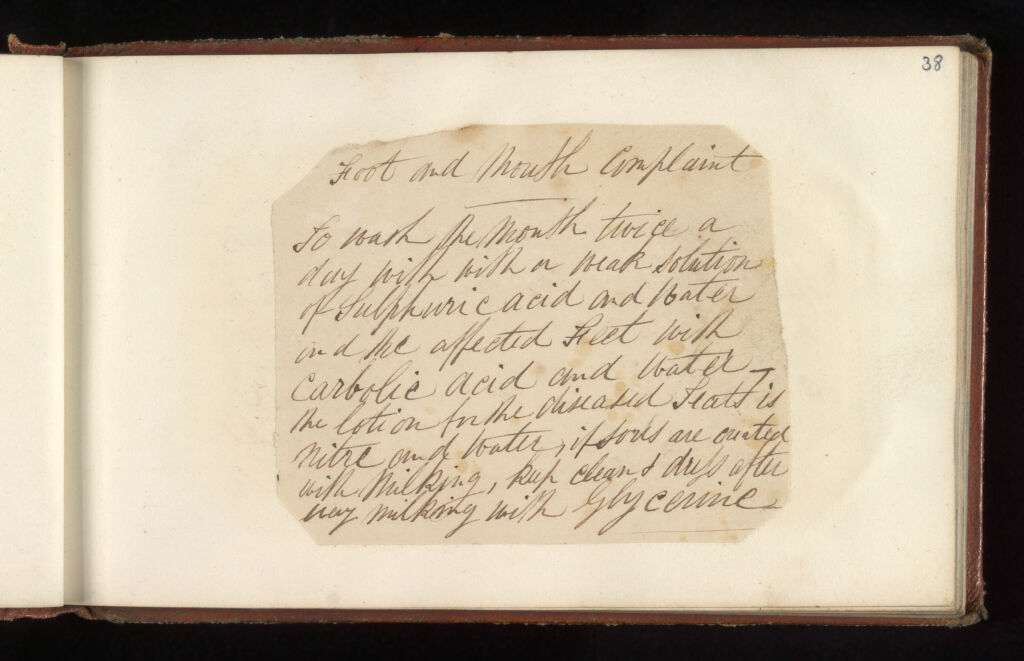 38
Foot and Mouth Complaint
To wash the Mouth twice a
day with with a weak solution
of Sulphuric acid and Water
and the affected Feet with
Carbolic acid and Water -
the lotion for the diseased Teats is
Nitre and Water, if sores are created
with Milking, keep clean & dress after
every milking with Glycerine